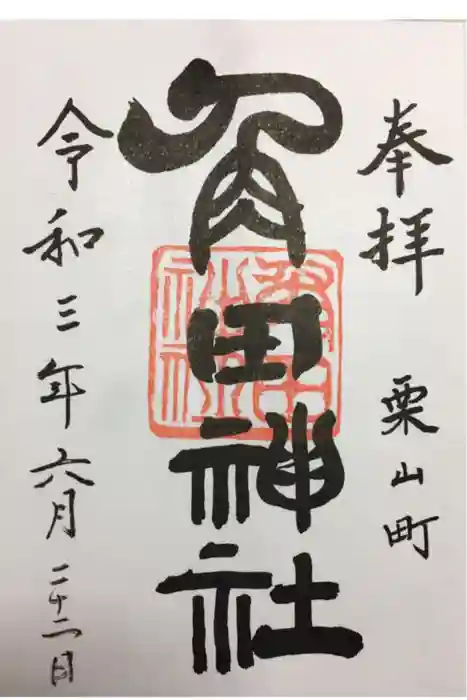 奉拝 栗山町
角田神社
令和三年六月二十二日